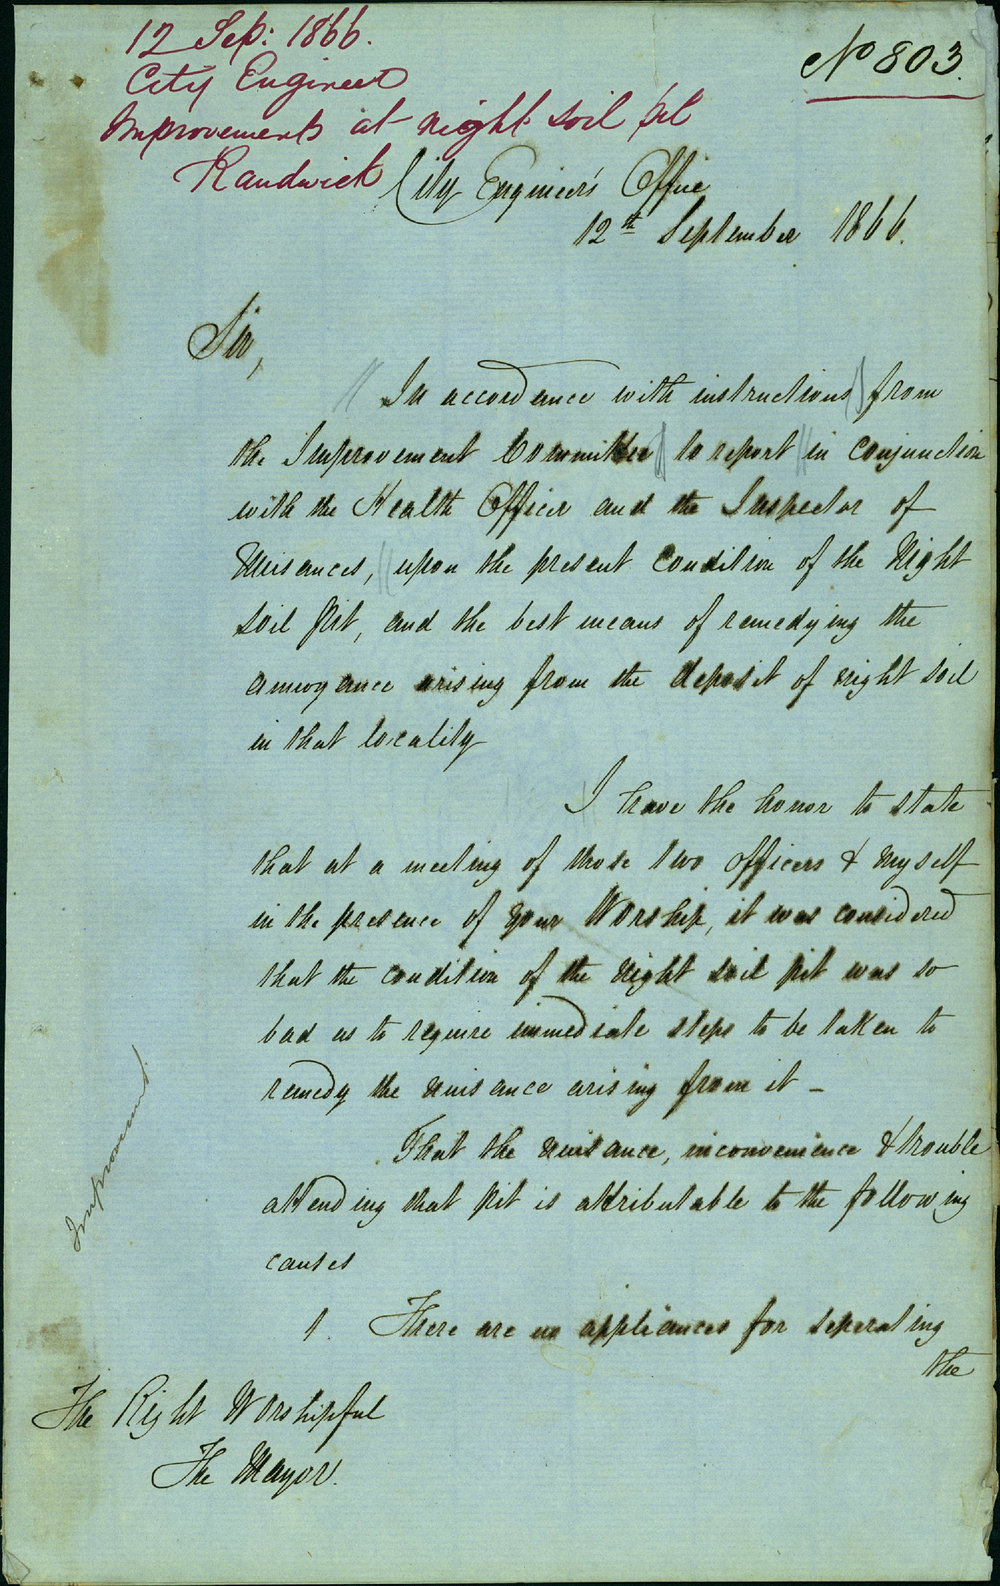 12 Sep: 1866.
City Engineer
Improvements at night soil pit
Randwick
No 803.
City Engineer's Office
12th September 1866.
Sir,
In accordance with instructions from
the Improvement Committee to report in conjunction
with the Health Officer and the Inspector of
Nuisances, upon the present condition of the Night
soil Pit, and the best means of remedying the
annoyance arising from the deposit of night soil
in that locality
I have the honor to state
that at a meeting of those two officers & myself
in the presence of your Worship, it was considered
that the condition of the night soil pit was so
bad as to require immediate steps to be taken to
remedy the nuisance arising from it -
That the nuisance, inconvenience & trouble
attending that Pit is attributable to the following
causes
1. There are no appliances for seperating
the
The Right Worshipful
The Mayor.
Improvement